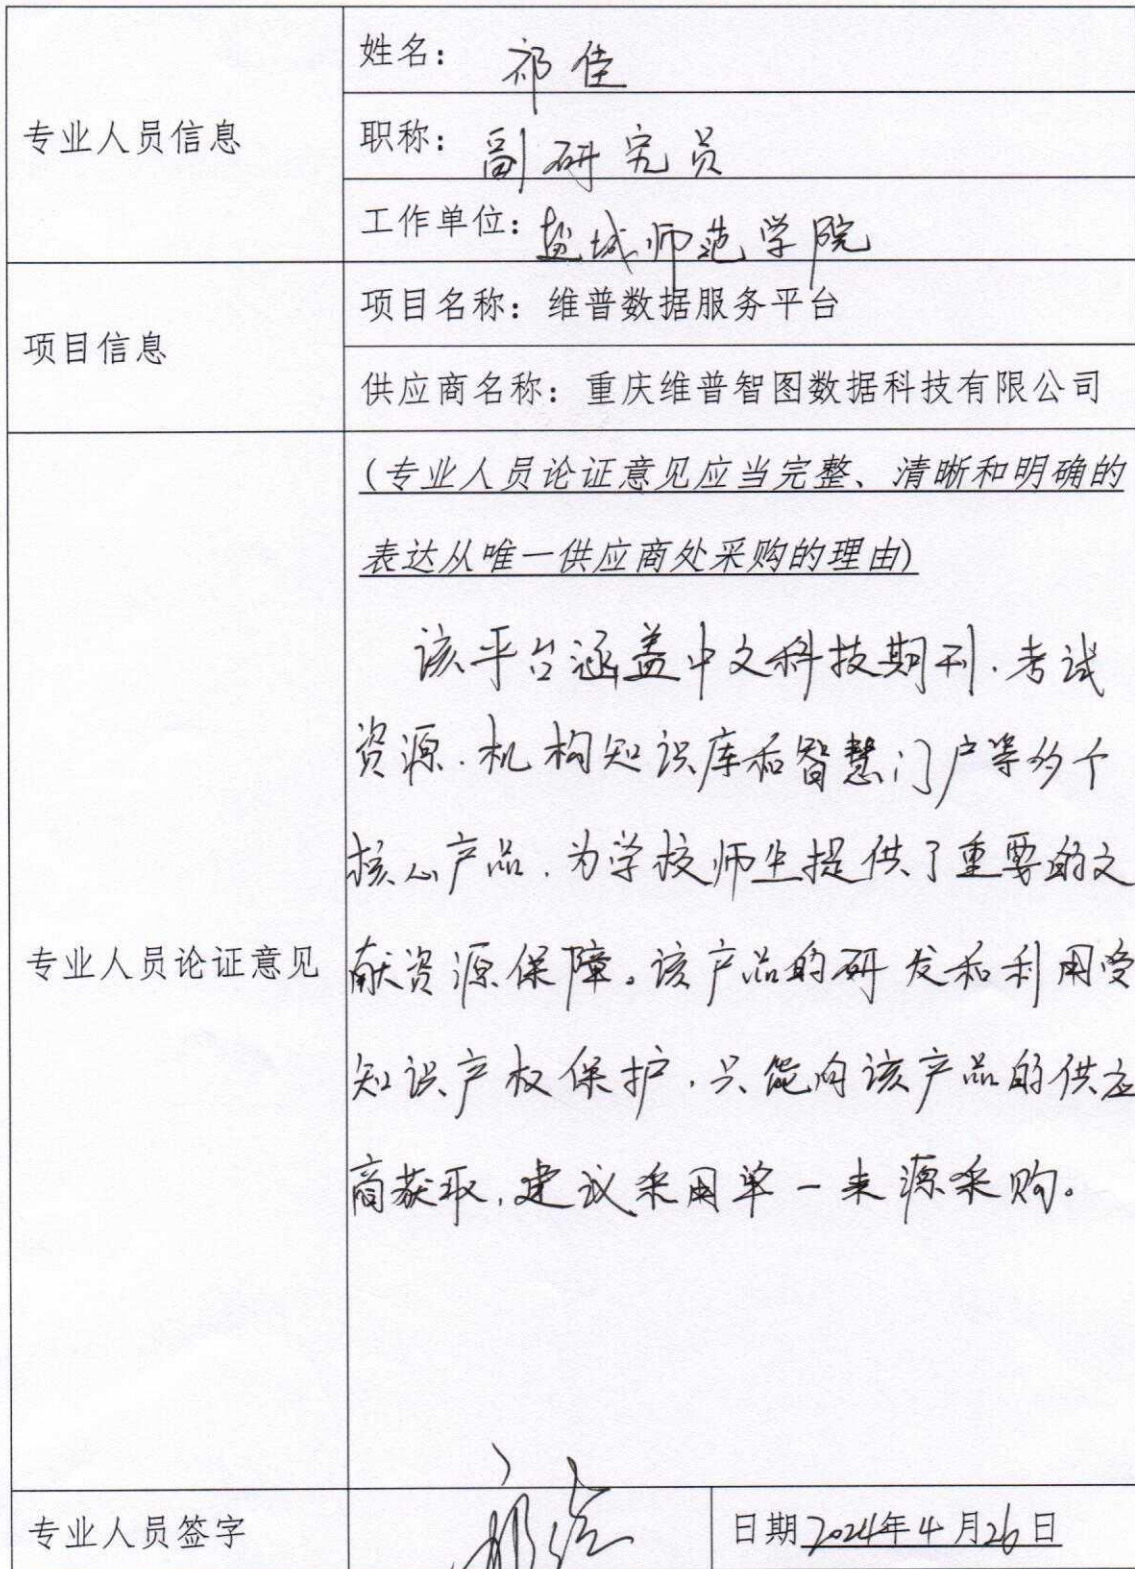 专业人员信息
姓名：祁佳
职称：副研究员
工作单位：盐城师范学院
项目信息
项目名称：维普数据服务平台
供应商名称：重庆维普智图数据科技有限公司
专业人员论证意见
(专业人员论证意见应当完整、清晰和明确的
表达从唯一供应商处采购的理由)
该平台涵盖中文科技期刊.考试
资源.机构知识库和智慧门户等多个
核心产品.为学校师生提供了重要的文
献资源保障。该产品的研发和利用受
知识产权保护.只能向该产品的供应
商获取,建议采用单一来源采购。
专业人员签字
日期2024年4月26日